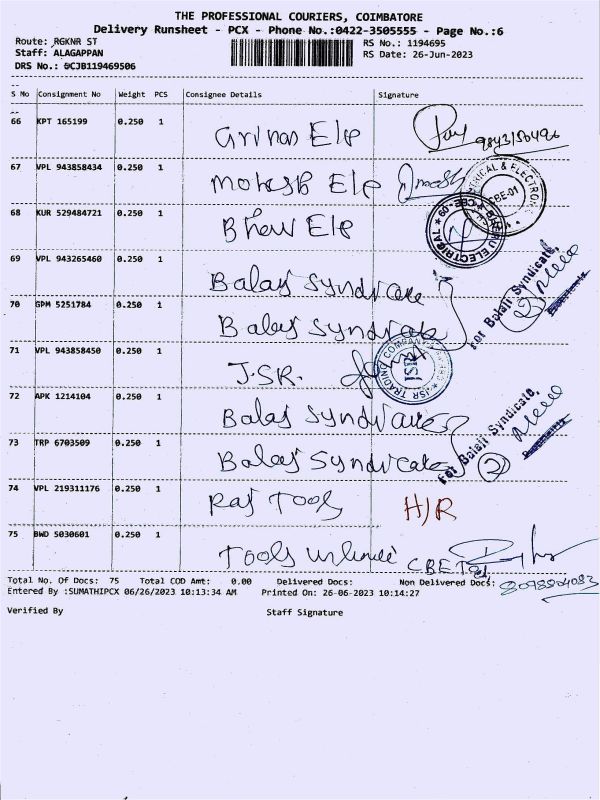 THE PROFESSIONAL COURIERS, COIMBATORE
Delivery Runsheet - PCX - Phone No.:0422-3505555 - Page No.:6
Route: RGKNR ST
RS No.: 1194695
Staff: ALAGAPPAN
RS Date: 26-Jun-2023
DRS No.: 6CJB119469506
S No Consignment No Weight PCS Consignee Details Signature
66 KPT 165199 0.250 1 9843150496
67 VPL 943858434 0.250 1 Mahesh Ele
CBE-01
68 KUR 529484721 0.250 1 Ele
69 VPL 943265460 0.250 1 Balaj Syndicate
For Balaji Syndicate,
70 GPM 5251784 0.250 1 Balaj Syndicate
71 VPL 943858450 0.250 1 J.SR. JSR TRADING COMPANY
72 APK 1214104 0.250 1 Balaj Syndicate
For Balaji Syndicate,
73 TRP 6703509 0.250 1 Balaj Syndicate
74 VPL 219311176 0.250 1 Raj Tools H/R
75 BWD 5030601 0.250 1 Tools CBE
Total No. Of Docs: 75 Total COD Amt: 0.00 Delivered Docs: Non Delivered Docs: 8098804083
Entered By :SUMATHIPCX 06/26/2023 10:13:34 AM Printed On: 26-06-2023 10:14:27
Verified By Staff Signature